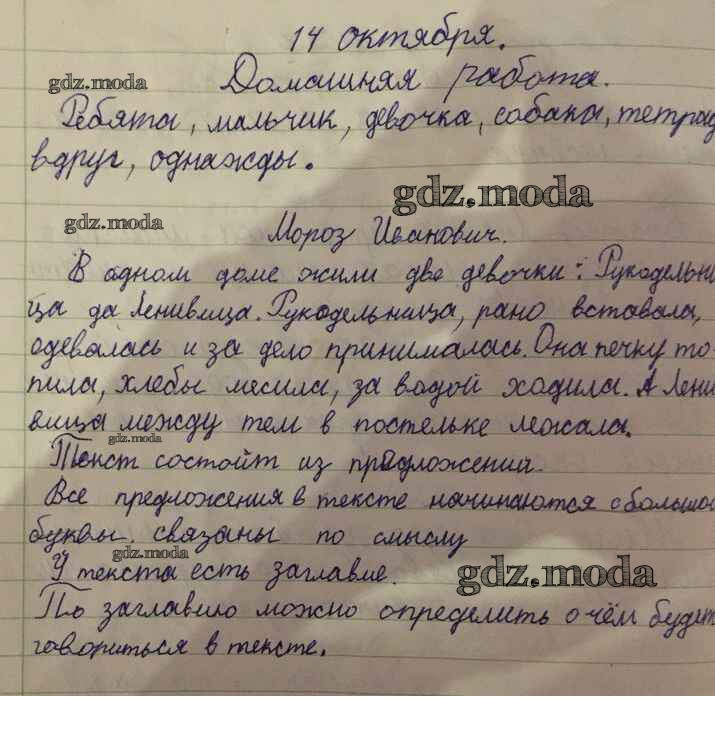 14 октября.
gdz.moda
Домашняя работа.
Ребята, мальчик, девочка, собака, тетрад
вдруг, однажды.
gdz.moda
gdz.moda
Мороз Иванович.
В одном доме жили две девочки: Рукодельни
ца да Ленивица. Рукодельница, рано вставала,
одевалась и за дело принималась. Она печку то-
пила, хлебы месила, за водой ходила. А Лени
вица между тем в постельке лежала.
gdz.moda
Текст состоит из предложений.
Все предложения в тексте начинаются с большо
буквы. связаны по смыслу
gdz.moda
У текста есть заглавие.
gdz.moda
По заглавию можно определить о чём будет
говориться в тексте.